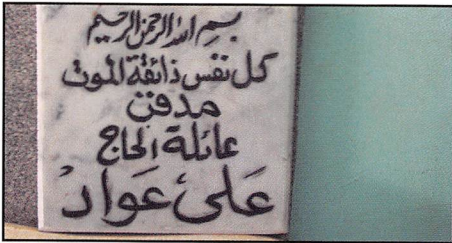 بسم الله الرحمن الرحيم
كل نفس ذائقة الموت
مدفن
عائلة الحاج
على عواد